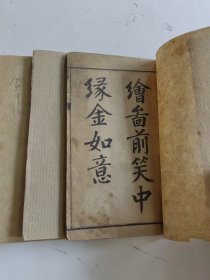 繪啚前笑中
緣金如意